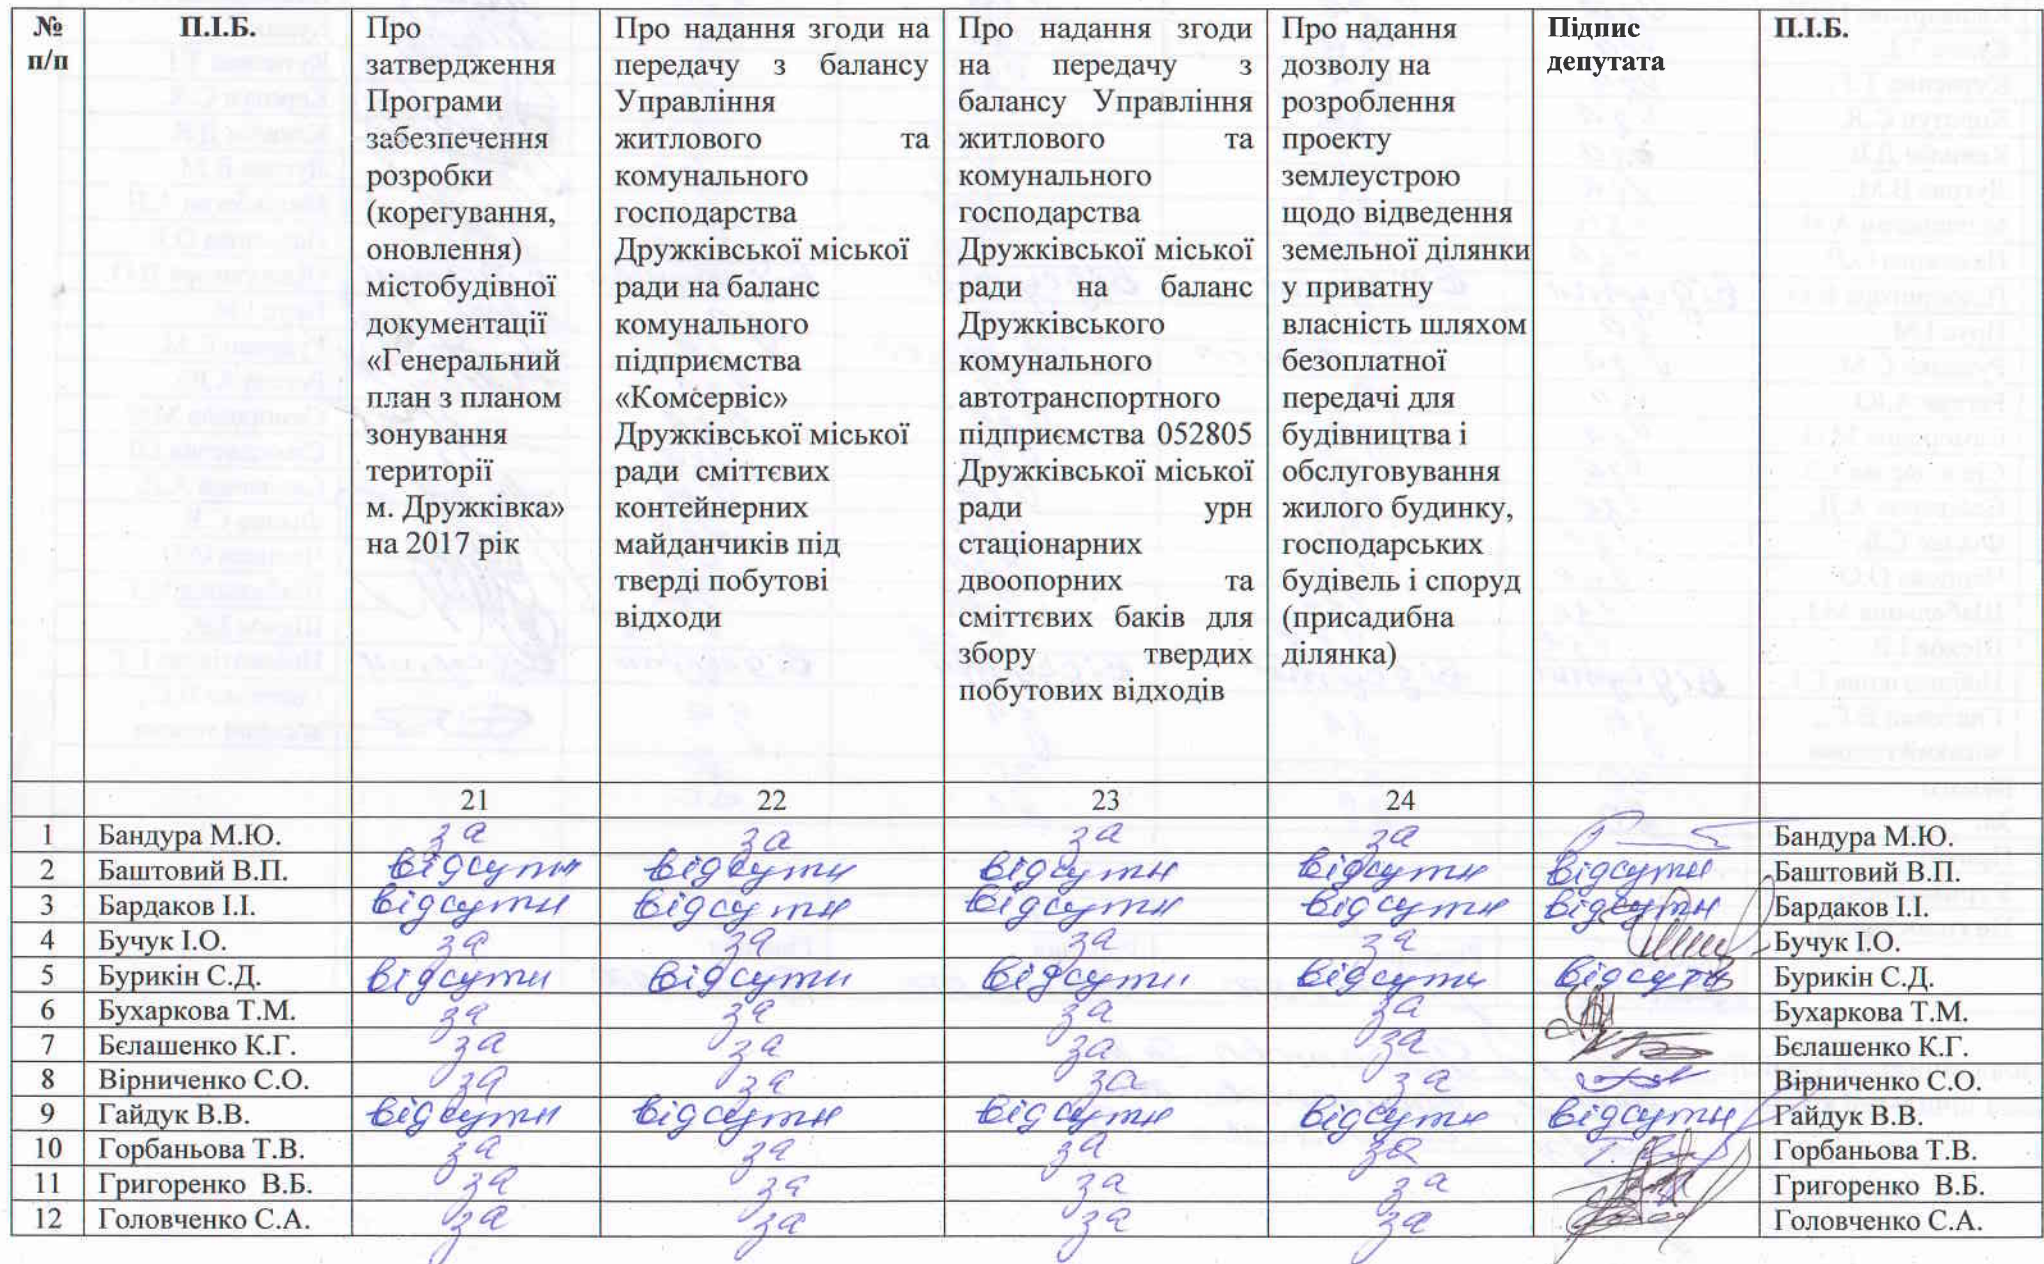 № п/п
П.І.Б.
Про
затвердження
Програми
забезпечення
розробки
(корегування,
оновлення)
містобудівної
документації
«Генеральний
план з планом
зонування
території
м. Дружківка»
на 2017 рік
Про надання згоди на
передачу з балансу
Управління
житлового та
комунального
господарства
Дружківської міської
ради на баланс
комунального
підприємства
«Комсервіс»
Дружківської міської
ради сміттєвих
контейнерних
майданчиків під
тверді побутові
відходи
Про надання згоди
на передачу з
балансу Управління
житлового та
комунального
господарства
Дружківської міської
ради на баланс
Дружківського
комунального
автотранспортного
підприємства 052805
Дружківської міської
ради урн
стаціонарних
двоопорних та
сміттєвих баків для
збору твердих
побутових відходів
Про надання
дозволу на
розроблення
проекту
землеустрою
щодо відведення
земельної ділянки
у приватну
власність шляхом
безоплатної
передачі для
будівництва і
обслуговування
жилого будинку,
господарських
будівель і споруд
(присадибна
ділянка)
Підпис
депутата
П.І.Б.
21 22 23 24
1 Бандура М.Ю. за за за за Бандура М.Ю.
2 Баштовий В.П. відсутн відсутн відсутн відсутн відсутн Баштовий В.П.
3 Бардаков І.І. відсутн відсутн відсутн відсутн відсутн Бардаков І.І.
4 Бучук І.О. за за за за Бучук І.О.
5 Бурикін С.Д. відсутн відсутн відсутн відсутн відсутн Бурикін С.Д.
6 Бухаркова Т.М. за за за за Бухаркова Т.М.
7 Бєлашенко К.Г. за за за за Бєлашенко К.Г.
8 Вірниченко С.О. за за за за Вірниченко С.О.
9 Гайдук В.В. відсутн відсутн відсутн відсутн відсутн Гайдук В.В.
10 Горбаньова Т.В. за за за за Горбаньова Т.В.
11 Григоренко В.Б. за за за за Григоренко В.Б.
12 Головченко С.А. за за за за Головченко С.А.